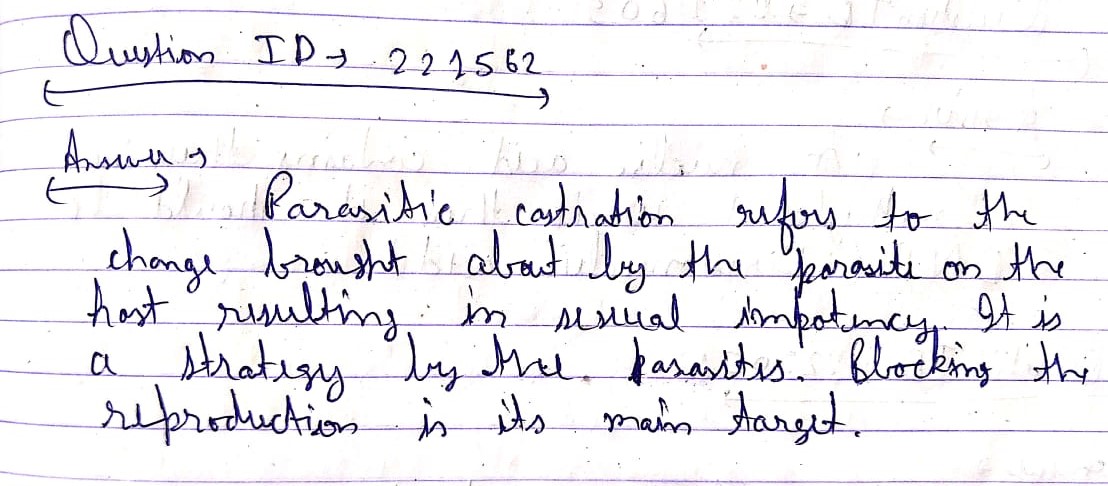 Question ID → 221562
Answer →
Parasitic castration refers to the
change brought about by the parasite on the
host resulting in sexual impotency. It is
a strategy by the parasites. Blocking the
reproduction is its main target.